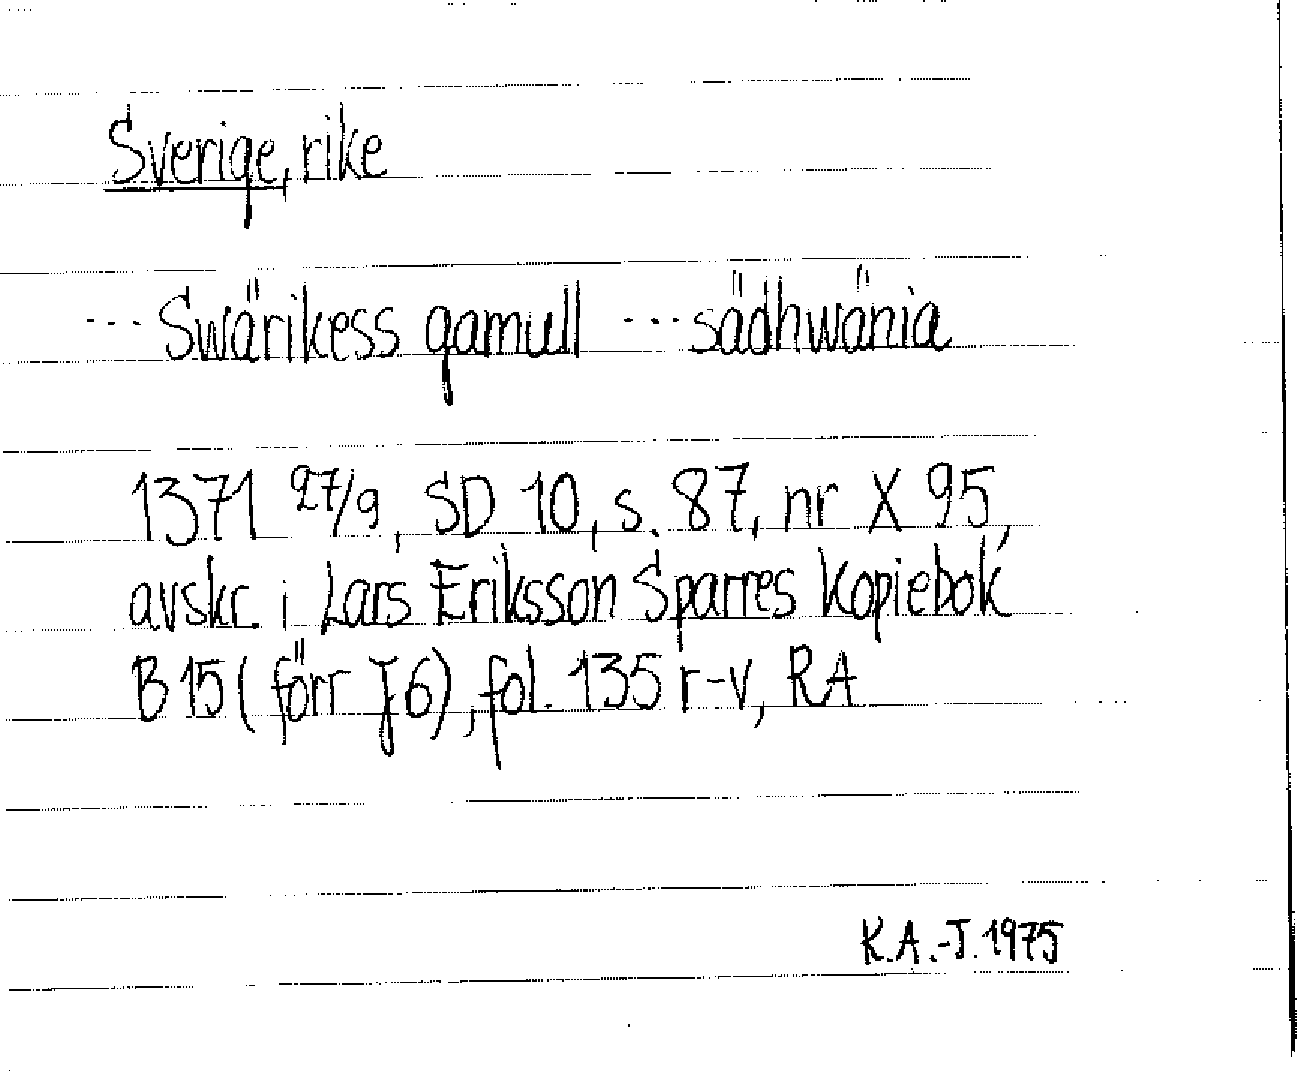 Sverige, rike
--- Swärikess gamull --- sädhwänia
1371 27/9, SD 10, s. 87, nr X 95,
avskr. i Lars Eriksson Sparres Kopiebok
B 15 (förr J 6), fol. 135 r-v, RA
K.A.-J. 1975